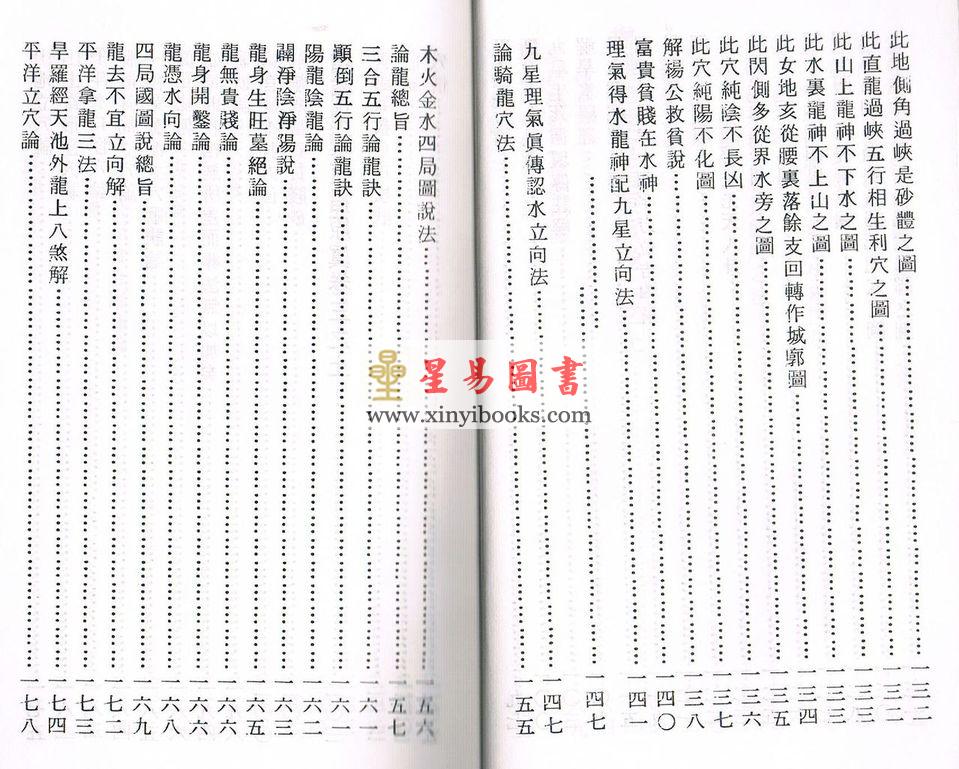 此地側角過峽是砂體之圖……一三二
此直龍過峽五行相生利穴之圖……一三二
此山上龍神不下水之圖……一三三
此水裏龍神不上山之圖……一三三
此女地亥從腰裏落餘支回轉作城郭圖……一三四
此閃側多從界水旁之圖……一三五
此穴純陰不長凶……一三六
此穴純陽不化圖……一三七
解楊公救貧說……一三八
富貴貧賤在水神……一四〇
理氣得水龍神配九星立向法……一四一
……一四七
九星理氣眞傳認水立向法……一四七
論騎龍穴法……一五五
木火金水四局圖說法……一五六
論龍總旨……一五七
三合五行論龍訣……一六一
顛倒五行論龍訣……一六一
陽龍陰龍論……一六二
闢淨陰淨陽說……一六三
龍身生旺墓絕論……一六五
龍無貴賤論……一六六
龍身開鑿論……一六六
龍憑水向論……一六八
四局國圖說總旨……一六九
龍去不宜立向解……一七二
平洋拿龍三法……一七三
旱羅經天池外龍上八煞解……一七四
平洋立穴論……一七八
星易圖書
www.xinyibooks.com